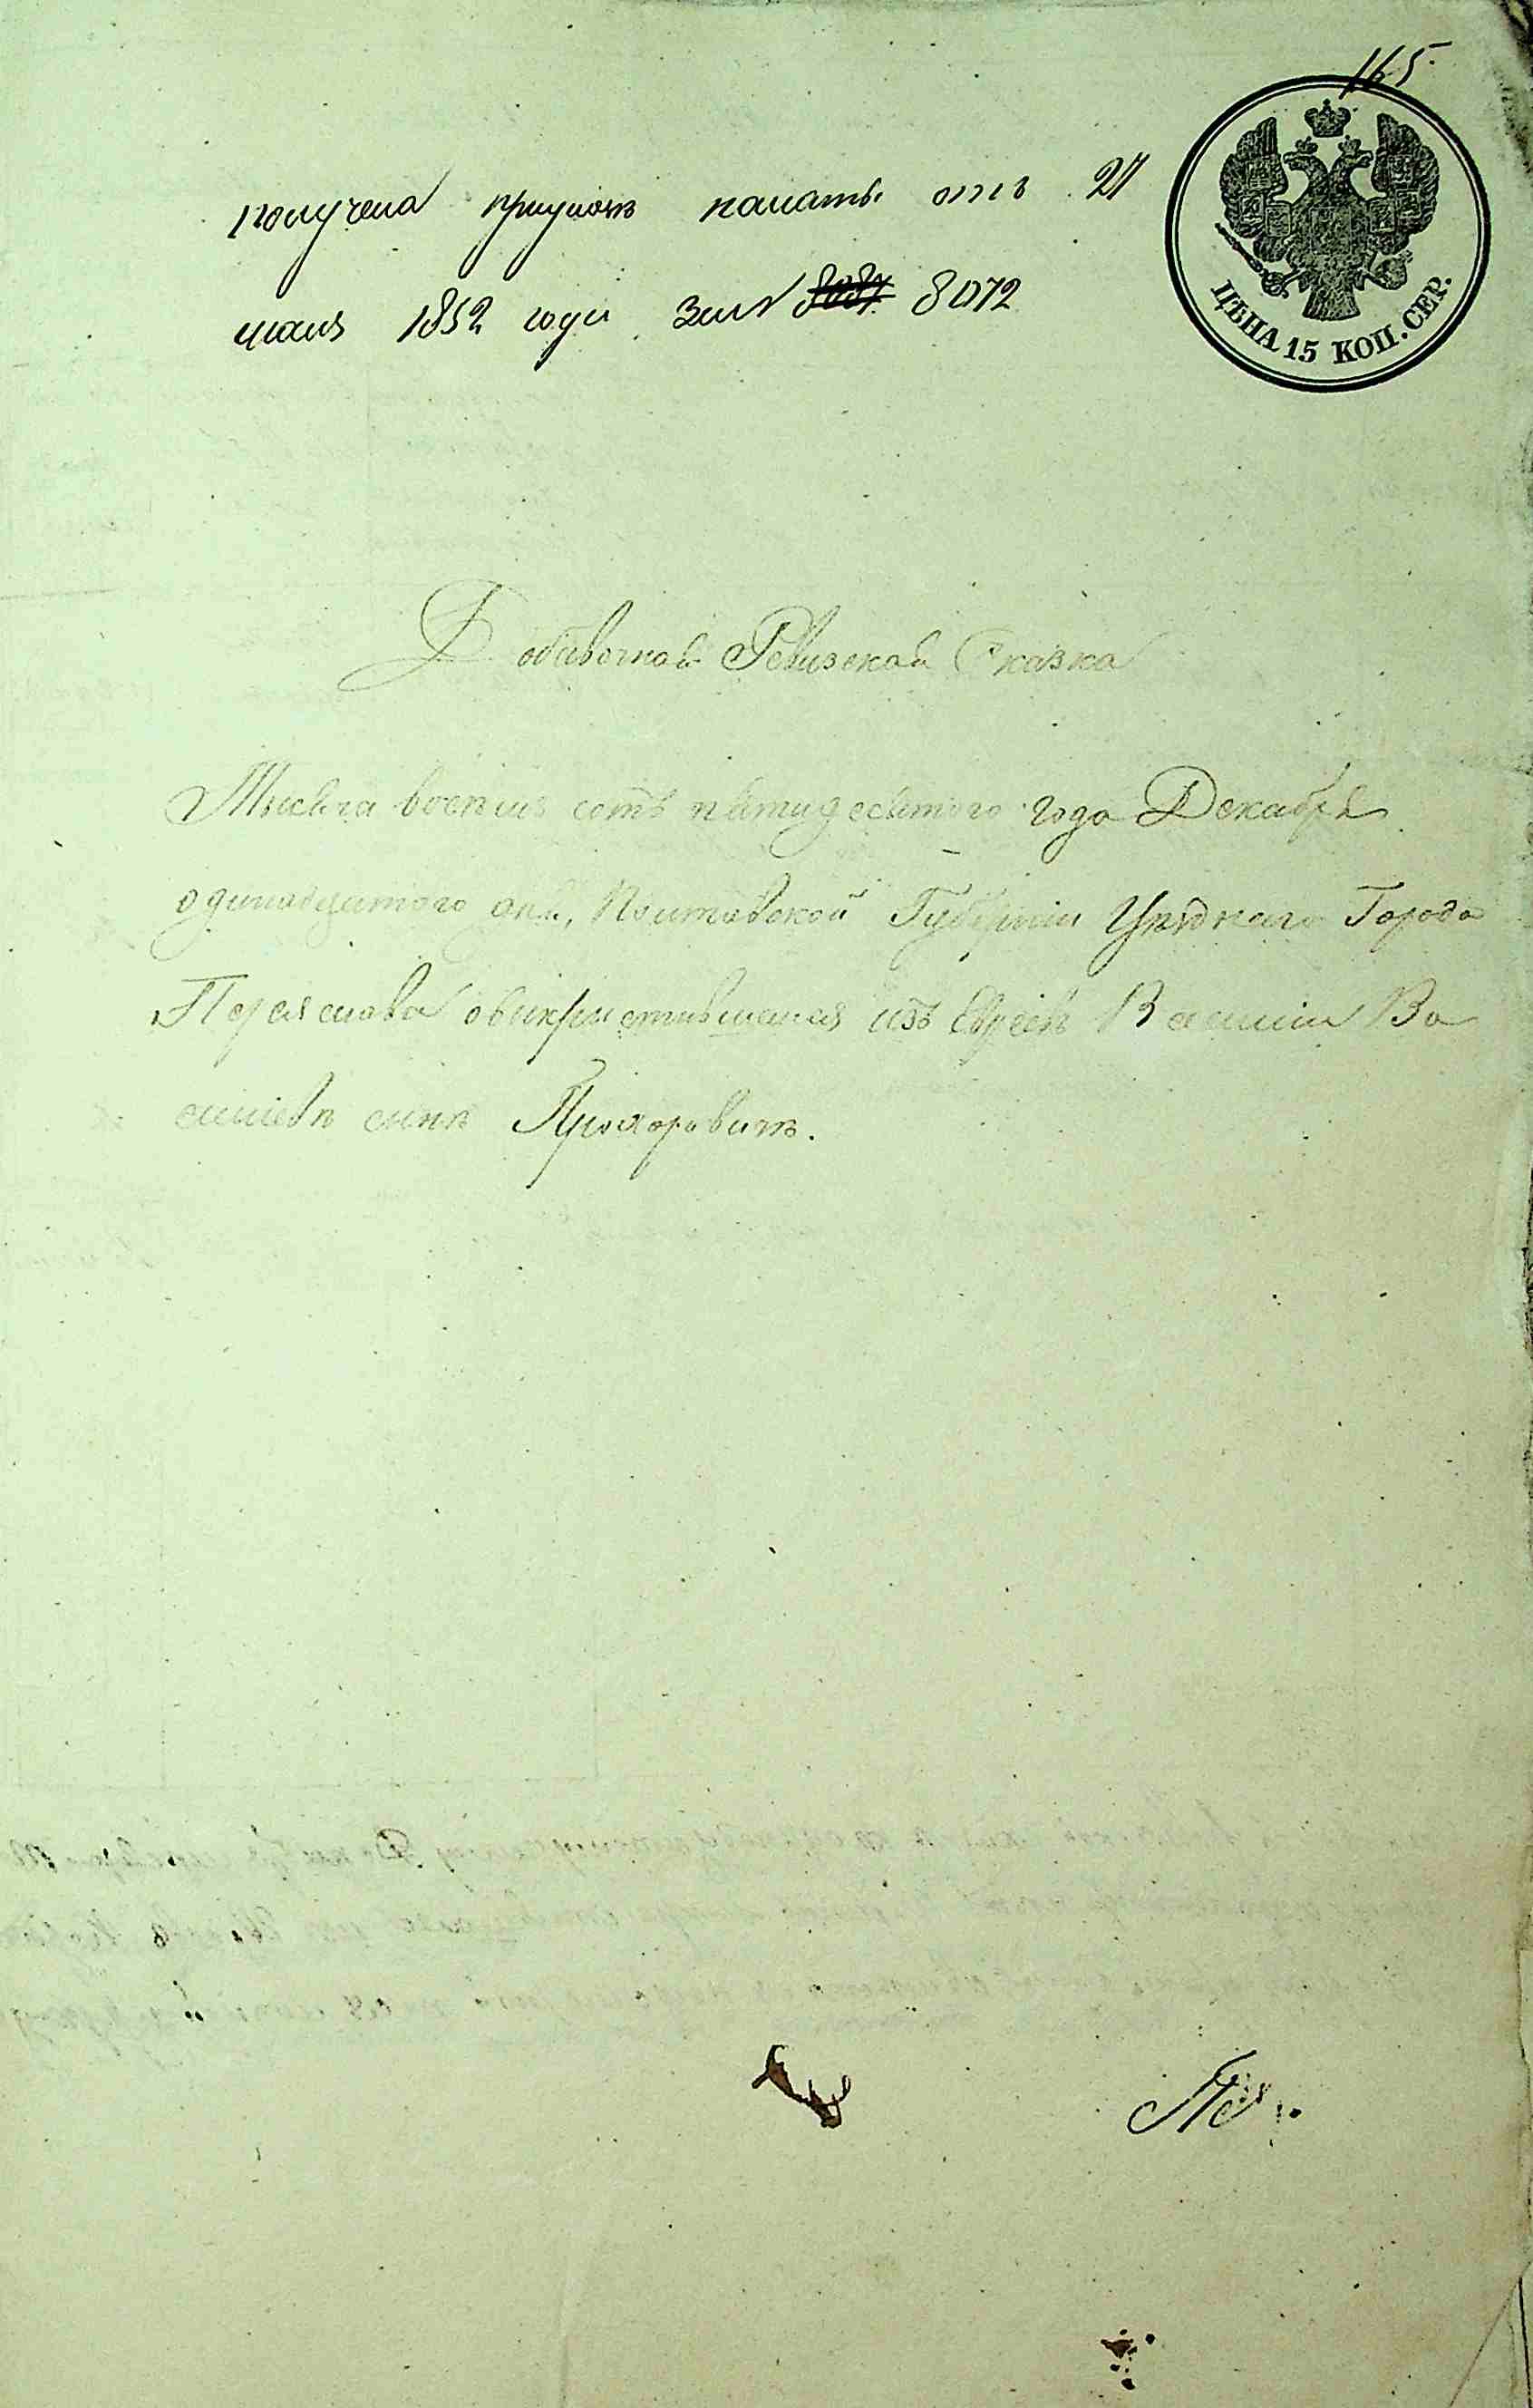 165.
получена приуказѣ палаты отъ 27
маія 1852 года за № 8087 8072
ЦѢНА 15 КОП. СЕР.
Добавочная Ревизская Сказка
Тысяча восемь сотъ пятидесятого года Декабря
одинадцатого дня, Полтавской Губерніи Уѣзднаго Города
Переяслова овыкристившемся изъ Евреевъ Василіи Ва
силіевѣ сынѣ Прохоровичѣ.